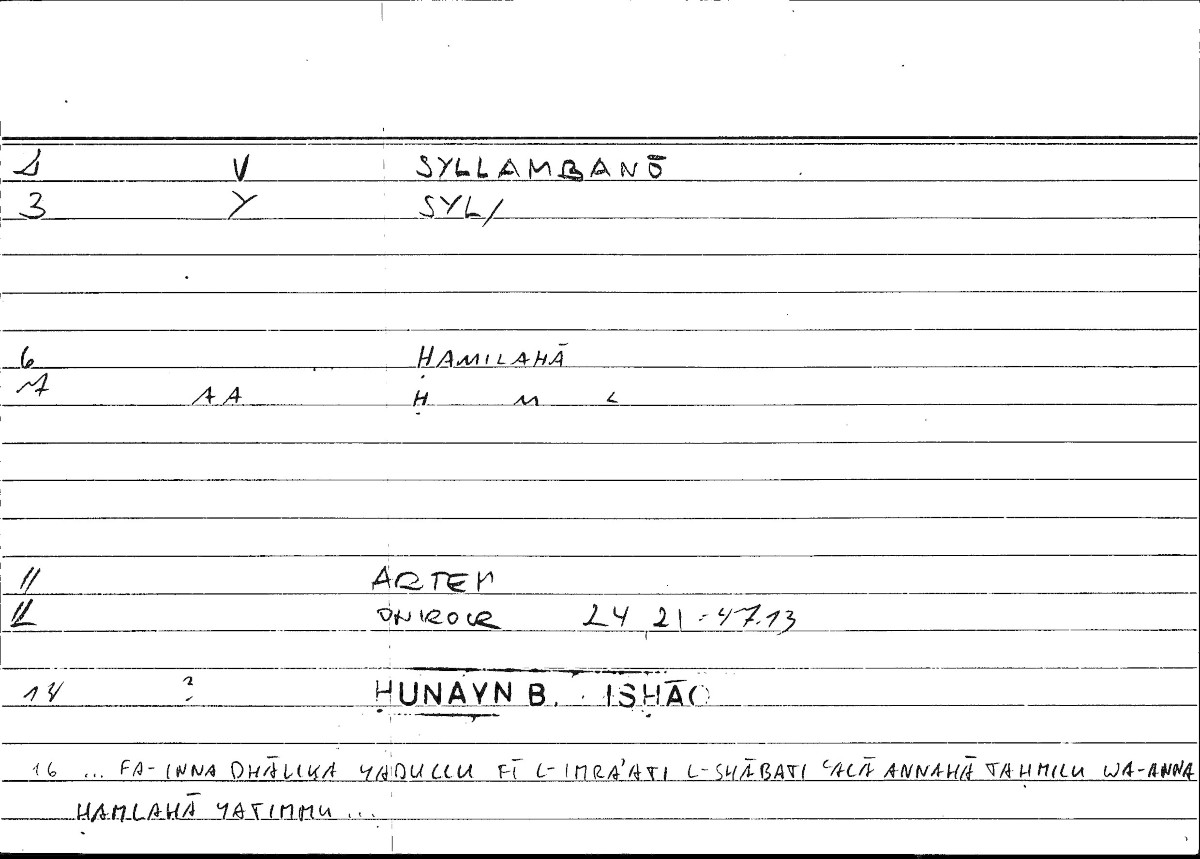 1 V SYLLAMBANŌ
3 Y SYL/
6 ḤAMILAHĀ
7 AA Ḥ M L
11 ARTEM
12 ONIROCR 24 21 - 47.13
14 ? ḤUNAYN B. ISḤĀQ
16 ... FA-INNA DHĀLIKA YADULLU FĪ L-IMRA'ATI L-SHĀBATI ʿALĀ ANNAHĀ TAḤMILU WA-ANNA
ḤAMLAHĀ YATIMMU ...